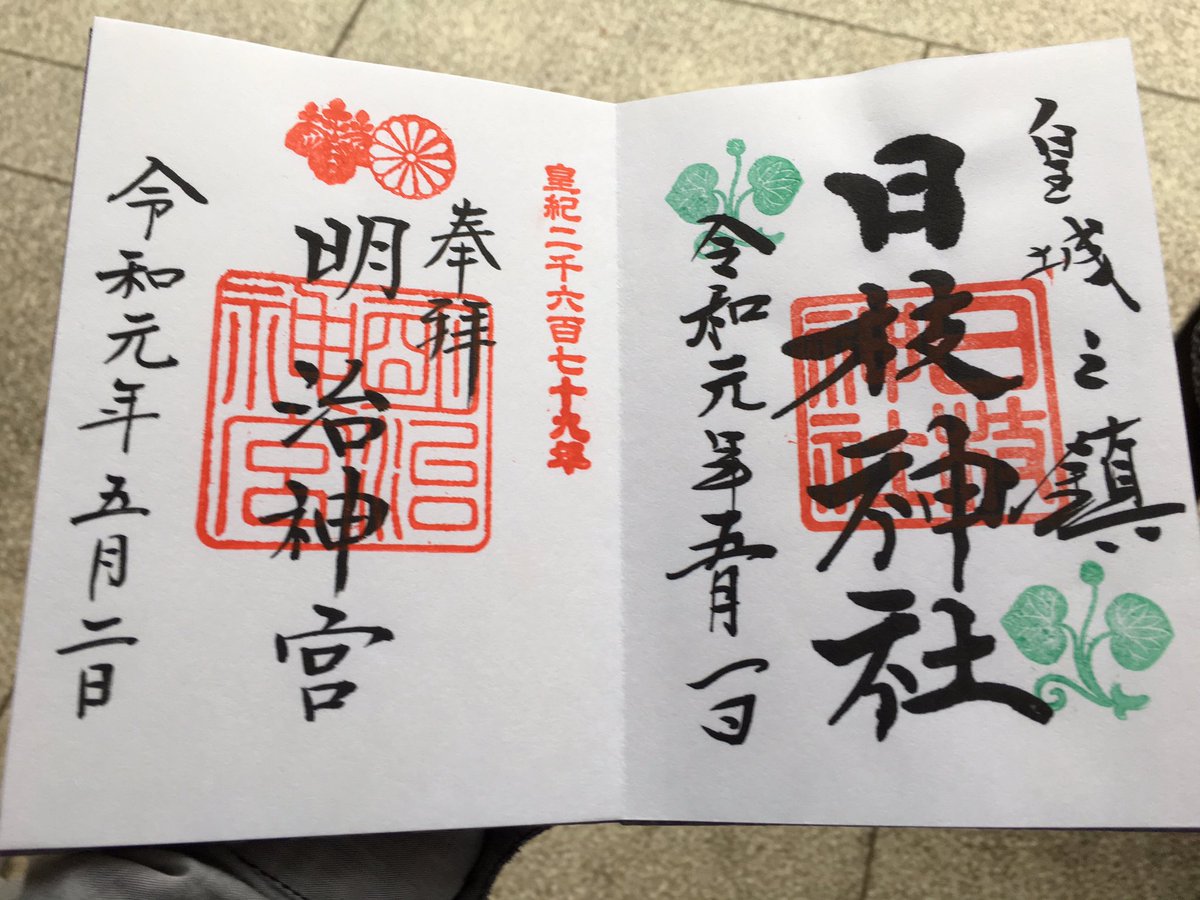 皇城之鎮
日枝神社
日枝神社
令和元年五月一日
皇紀二千六百七十九年
奉拝
明治神宮
明治神宮
令和元年五月二日